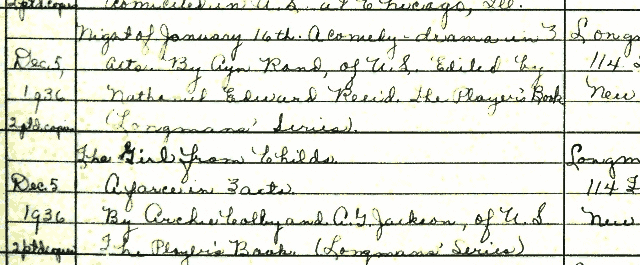 2ptd.copies domiciled in U.S. at Chicago, Ill.
Night of January 16th. A comedy-drama in 3 Longm
Dec. 5, acts. By Ayn Rand, of U.S. Edited by 114
1936 Nathaniel Edward Reeid. The Player's Book New
2ptd.copies (Longmans' Series).
The Girl from Childs. Longm
Dec. 5 A farce in 3 acts. 114 F
1936 By Archie Colby and A. G. Jackson, of U.S New
2ptd.copies The Player's Book. (Longmans' Series)